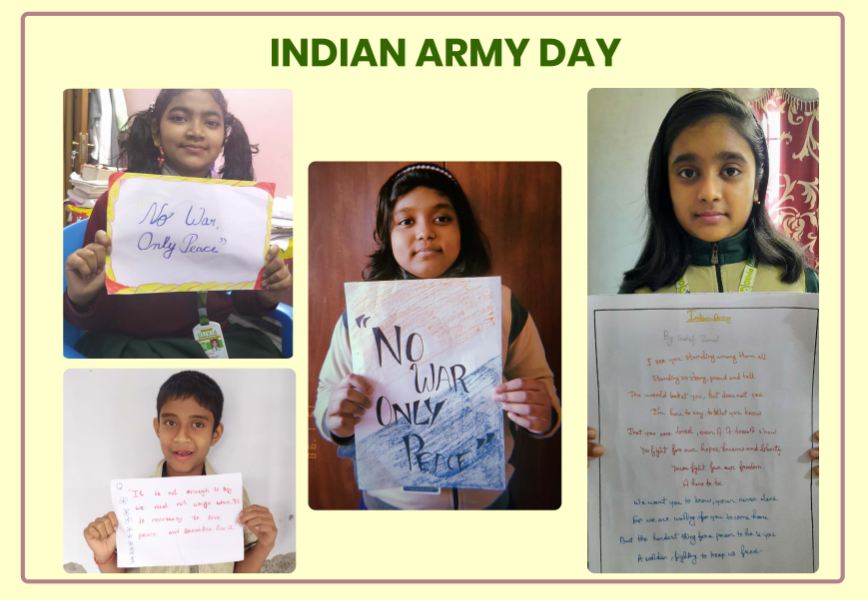 INDIAN ARMY DAY
No War,
Only Peace"
"NO
WAR
ONLY
PEACE"
It is not enough to say
we must not wage war. It
is necessary to love
peace and sacrifice for it
Indian Army
By
I see you standing among them all
Standing so strong, proud and tall
The world but you, but does not you
I'm here to say, to let you know
That you are loved, even if it doesn't show
You fight for our hopes, dreams and liberty
You fight for our freedom
A hero to be
We want you to know, your never alone
For we are waiting for you to come home
But the hardest thing for a person to be is you
A soldier, fighting to keep us free